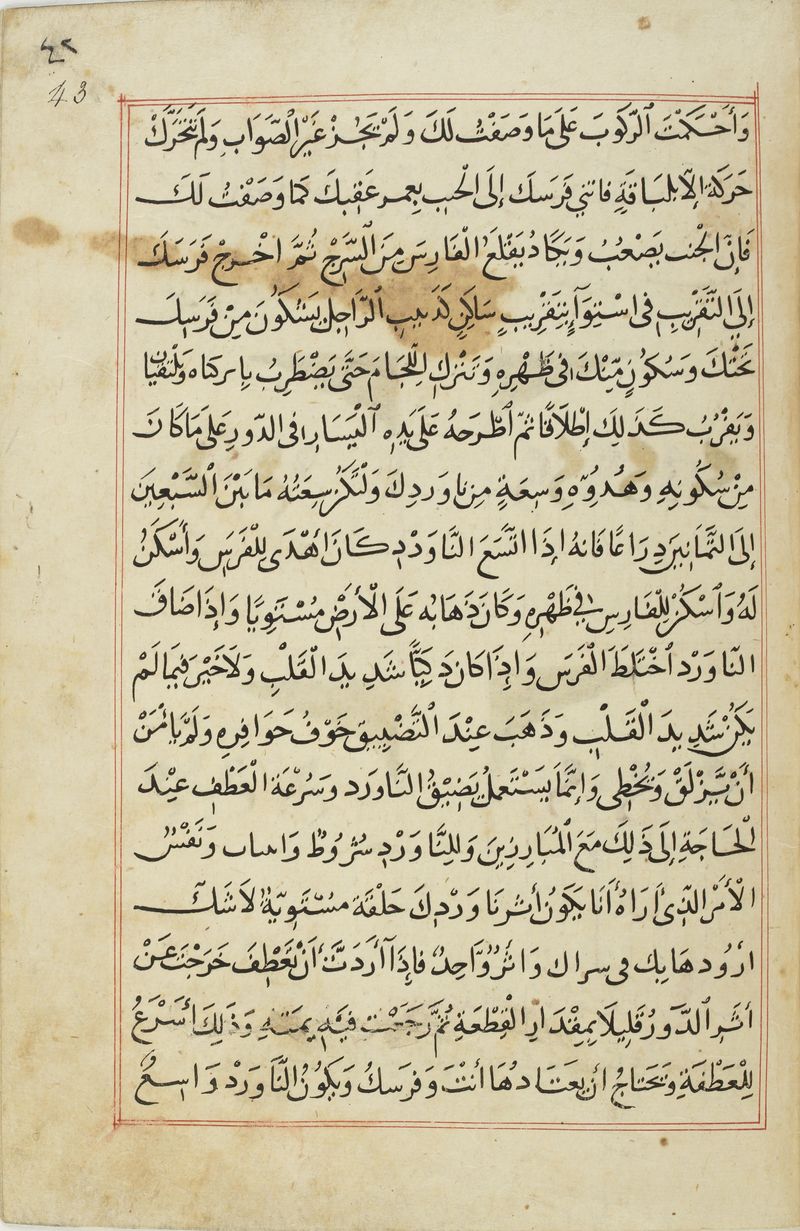 ٤٣
43
وَأَحْكَمْتَ الرُّكُوبَ عَلَى مَا وَصَفْتُ لَكَ وَلَمْ يَجُزْ غَيْرَ الصَّوَابِ وَلَمْ تَتَحَرَّكْ
حَرَكَةً إِلَّا بِلَبَاقَةٍ فاثني فَرَسَكَ إِلَى الْجنبِ بِغمز عَقِبِكَ كَمَا وَصَفْتُ لَكَ
فَإِنَّ الْجنب يَصْعُبُ وَيَكَادُ يَقْلَعُ الْفَارِسَ مِنَ السَّرْجِ ثُمَّ اخْرِجْ فَرَسَكَ
إِلَى التَّقْرِيبِ فِى اسْتِوَآءٍ بِتَقْرِيبٍ سَاكِنٍ كَدَبِيبِ الرَّاجِلِ بِسُكُونٍ مِنْ فَرَسِكَ
تَحْتَكَ وَسُكُونٍ مِّنْكَ فِى ظَهْرِهِ وَتَتْرُك اللِّجَامَ حَتَّى يَضْطَرِبُ
وَيَقْرُبُ كَذَلِكَ إِطْلَاقًا ثُمَّ اطْرَحهُ عَلَى يَدِهِ الْيَسَارِ فى الدَّورِ عَلَى مَا كَانَ
مِنْ سُكُونِهِ وَهُدُوِّهِ وَسِعَةٍ مِن ناوَردِكَ وَلْتَكُنْ سِعَتُهُ مَا بَيْنَ السَّبْعِينَ
إِلَى الثَّمَانِينَ ذِرَاعًا فَانهُ إِذَا اتَّسَعَ النَّاوَرْد كَانَ أَهْدَى لِلْفَرَسِ وَأَسْكَنُ
لَهُ وَأَسْكَنُ لِلْفَارِسِ فِي ظَهْرِهِ وَكَانَ ذَهَابُه عَلَى الْأَرْضِ مُسْتَوِيًا وَإِذَا ضَاقَ
النَّاوَرْد اخْتَلَطَ الْفَرَسُ وَإِذَا كَانَ ذَكِيًّا شَدِيدَ الْقَلْبِ وَلَا خَيْرَ فِيمَا لَمْ
يَكُنْ شَدِيدَ الْقَلْبِ وَذَهَبَ عِنْدَ التَّضْيِيقِ خَوْفُ حَوَافِرِهِ وَلَمْ يَأْمَنْ
أَنْ يَزْلَقْ وَيُخْطِى وَإِنَّمَا يَسْتَعملُ بِضِيْقِ النَّاوَرد وَسُرْعَة الْعَطْفِ عِنْدَ
الْحَاجَةِ إِلَى ذَلِكَ مَعَ الْمُبَارِزِينَ وَلِلنَّاوَرْدِ شُرُوطٌ وَاسباب وَنَفْسُ
الْأَمْرِ الَّذِى أَرَاهُ أَنَا يَكَونُ أثر نَاوَرْدِكَ حَلْقَة مُسْتَوِيَةٌ لَا شَكَّ
وَاثَرٌ وَّاحِدٌ فَإِذَا أَرَدْتَّ أَنْ تَعْطِفَ خَرَجْتَ عَنْ
أَثَرِ الدَّورِ قَلِيلًا بِمِقْدَارِ الْقِطْعَةِ ثُمَّ رَجَعْتَ فِيْهِ يمنة وَذَلِكَ أَسْرَعُ
لِلْعَطْفَةِ وَيَحتَاجُ أن يعتَادهَا أَنْتَ وَفَرَسُكَ وَيَكُونُ النَّاوَرْد وَاسِعٌ